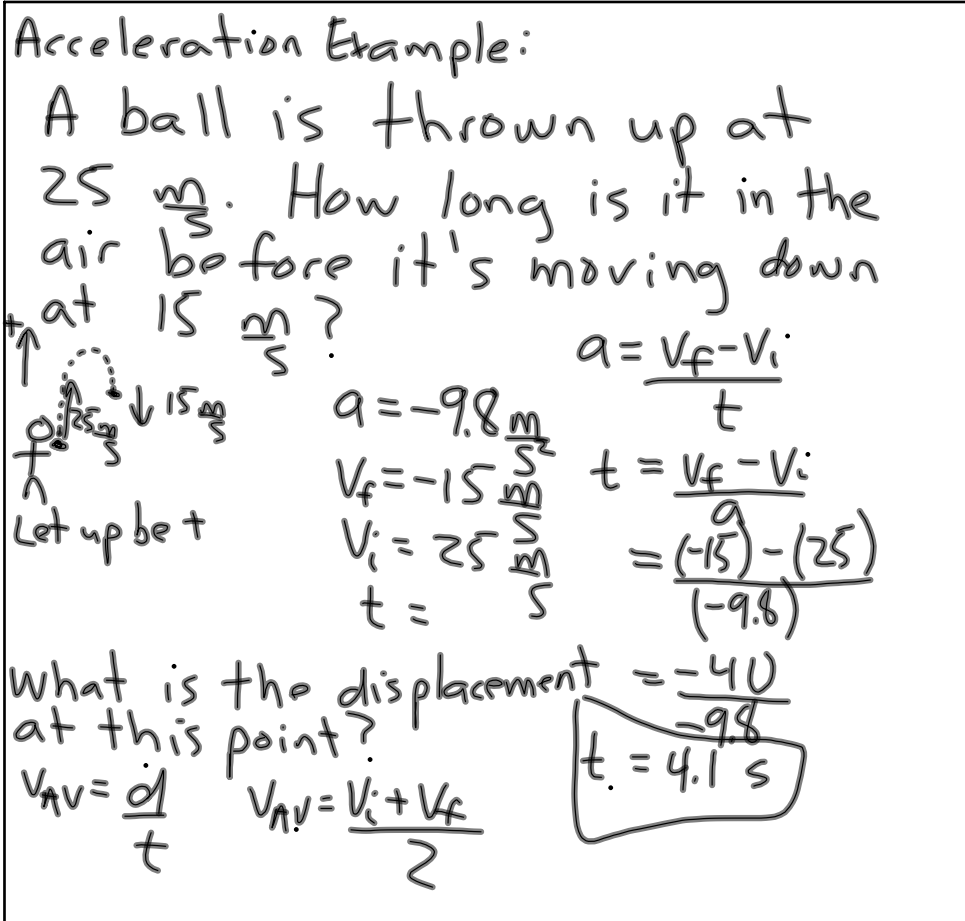 Acceleration Example:
A ball is thrown up at
25 m/s. How long is it in the
air before it's moving down
at 15 m/s?
+
25 m/s
15 m/s
Let up be +
a = -9.8 m/s²
Vf = -15 m/s
Vi = 25 m/s
t =
a = (Vf - Vi)/t
t = (Vf - Vi)/a
= ((-15) - (25))/(-9.8)
= -40/-9.8
t = 4.1 s
What is the displacement
at this point?
VAV = d/t
VAV = (Vi + Vf)/2